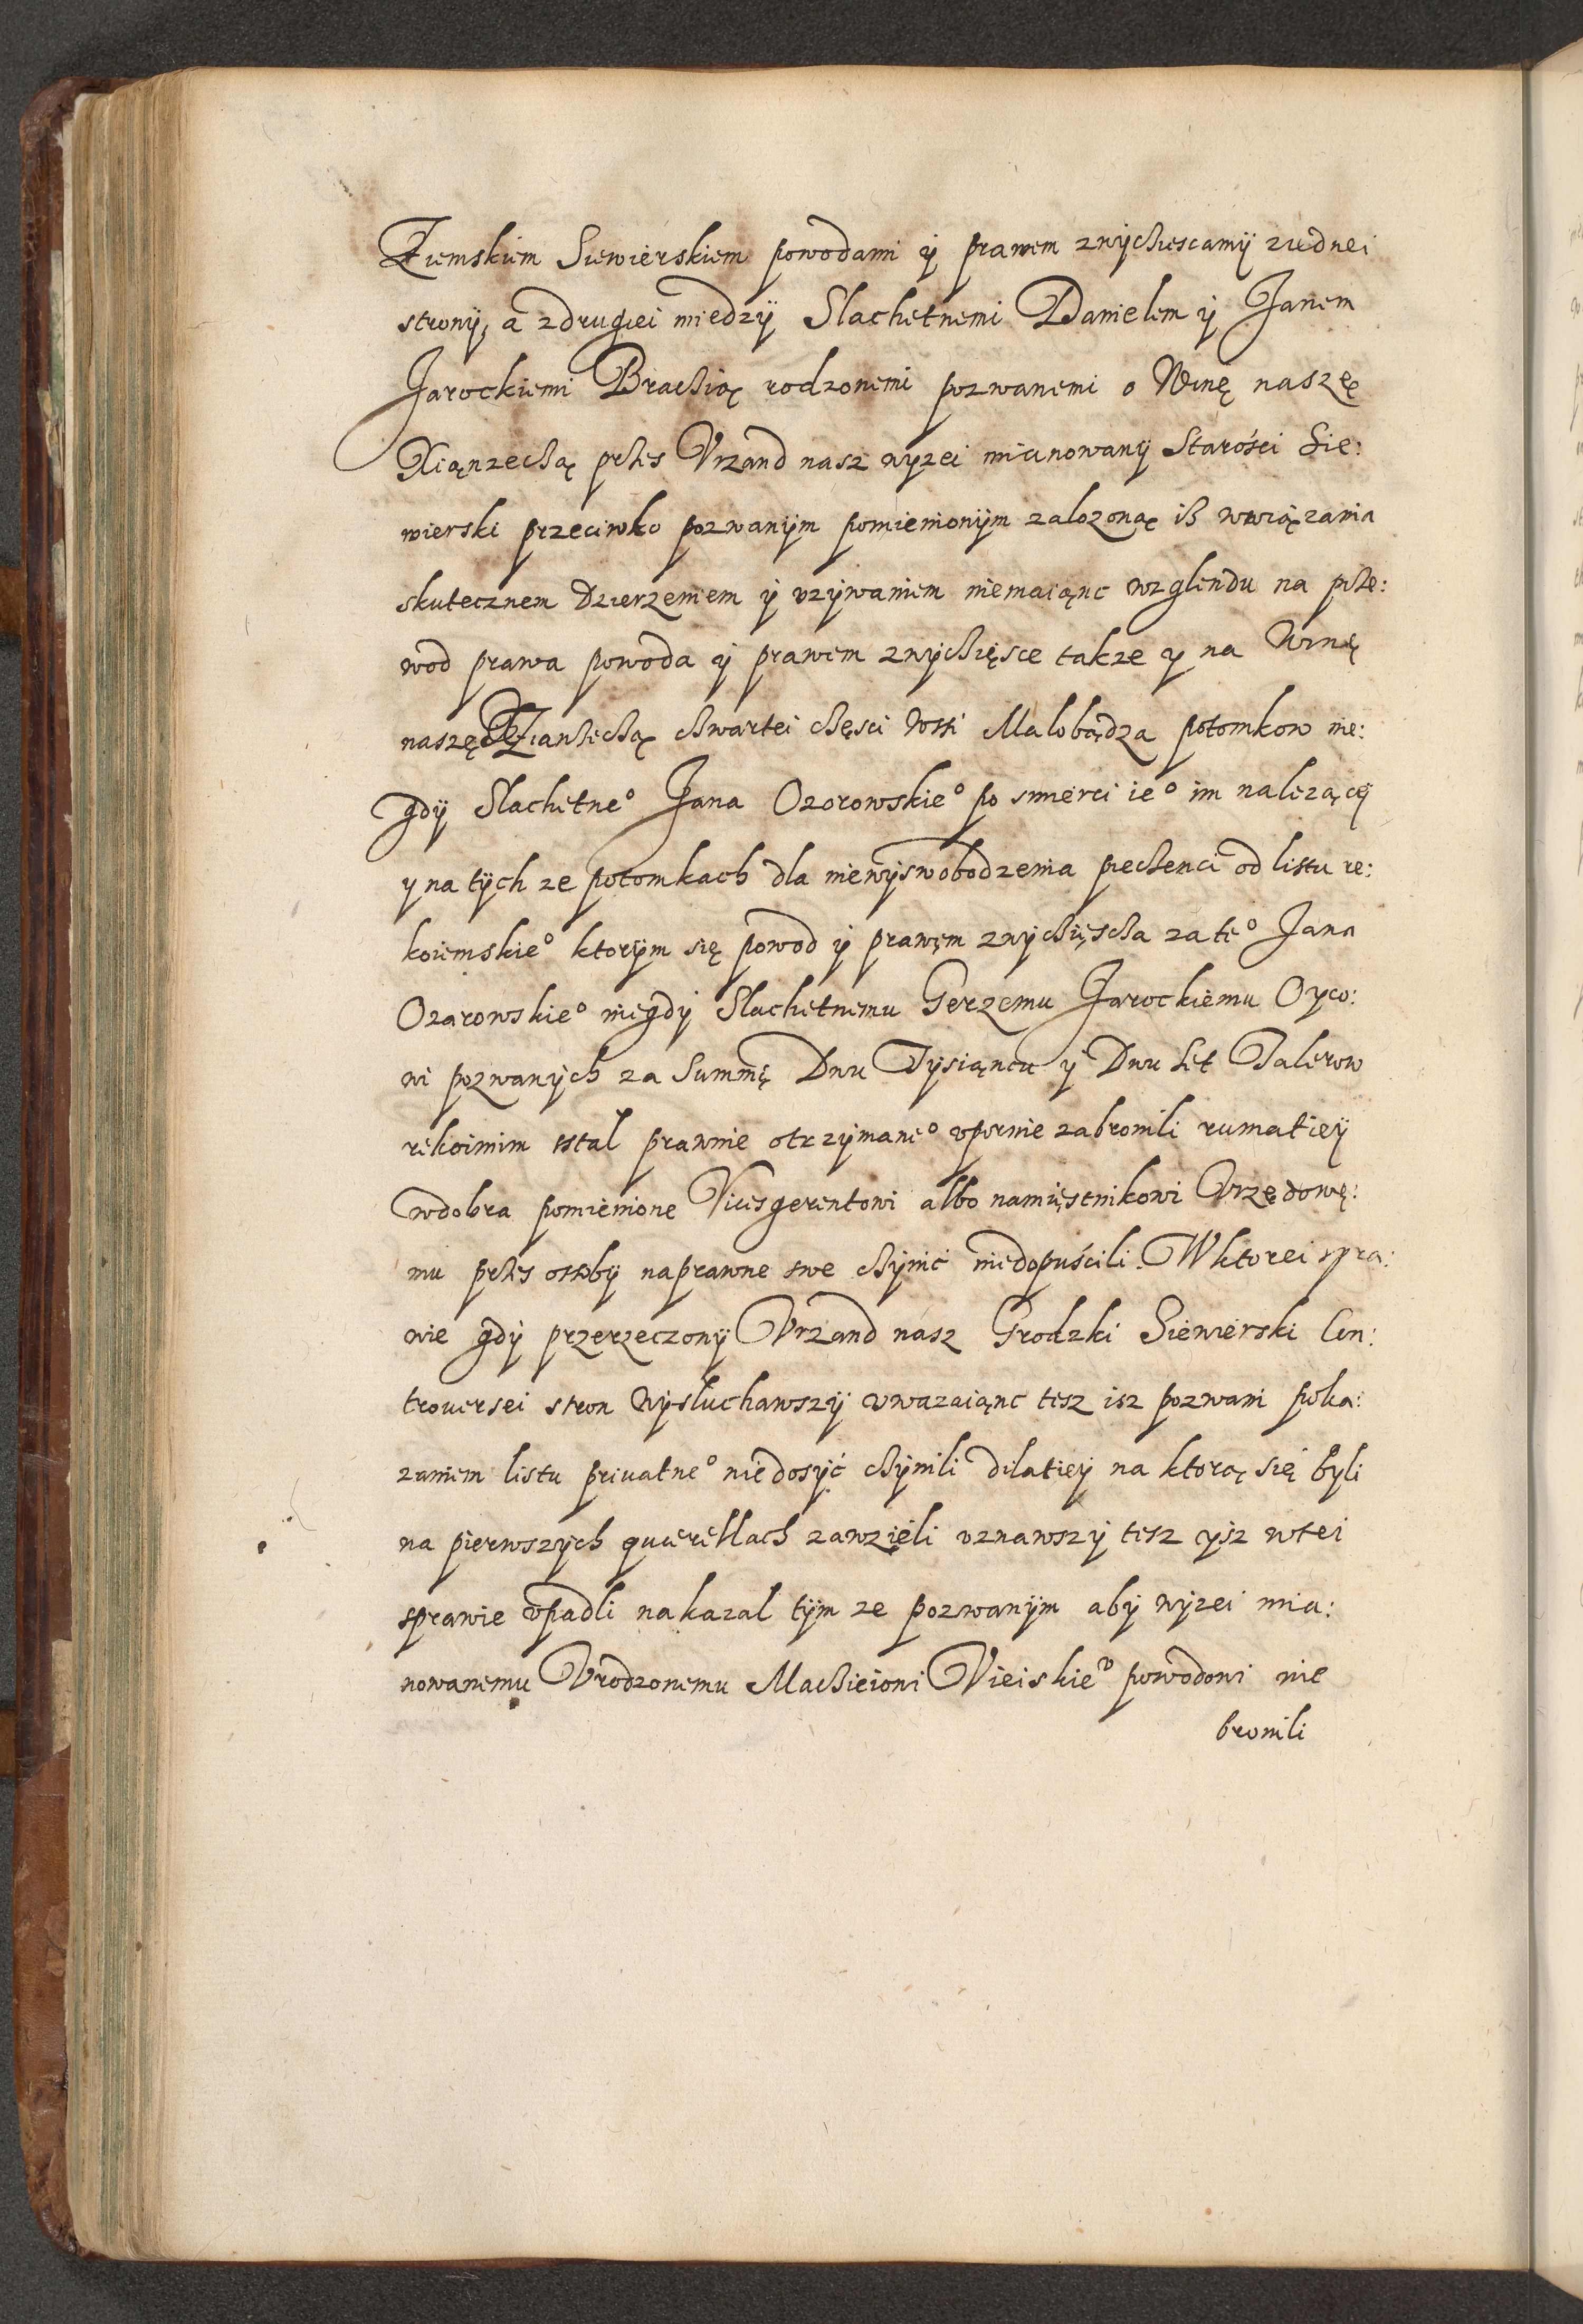 Ziemskim Siewierskiem powodami ÿ prawem zwÿchiescamÿ ziednei
stronÿ, a zdrugiei miedzÿ Slachetnemi Danielem ÿ Janem
Jarockiemi Brachią rodzonemi pozwanemi o Winę naszę
Xianzechą przes Vrzand nasz wyzei mianowanÿ Starości Sie:
wierski przeciwko pozwanÿm pomienionÿm zalozoną iß wwiązania
skutecznem dzierzeniem ÿ vzÿwaniem niemaianc wzglendu na prze:
wod prawa powoda ÿ prawem zwÿchięsce takze y na Winę
naszę Xianzechą chwartei chęsci wsi Malobądza potomkow nie:
gdÿ Slachetne° Jana Ozorowskie° po smierci ie° im nalezącej
y na tÿch ze potomkach dla niewÿswobodzenia piechenci od listu re:
koiemskie° ktorÿm się powod ÿ prawęm zwÿchięscha za te° Jana
Ozarowskie° niegdÿ Slachetnemu Gerzemu Jarockiemu Oyco:
wi pozwanÿch za Summę Dwu Tÿsiancu ÿ Dwu Set Talerow
rekoimim stal prawnie otrzÿmane° vpornie zabronili rumatieÿ
wdobra pomienione Vicesgerentowi albo namięstnikowi Vrzędowę:
mu przes osobÿ naprawne swe chÿnić niedopuścili. Wktorei spra:
wie gdÿ przerzeczonÿ Vrzand nasz Grodzki Siewierski Con:
trouersei stron wÿsluchawszÿ vwazaianc tesz isz pozwani poka:
zaniem listu priuatne° niedosÿć chÿnili dilatieÿ na ktorą się byli
na pierwszÿch querellach zawzięli vznawszÿ tesz ÿsz wtei
sprawie vpadli nakazal tÿm ze pozwanÿm abÿ wÿzei mia:
nowanemu Vrodzonemu Machieiowi Vieiskie° powodowi nie
bronili